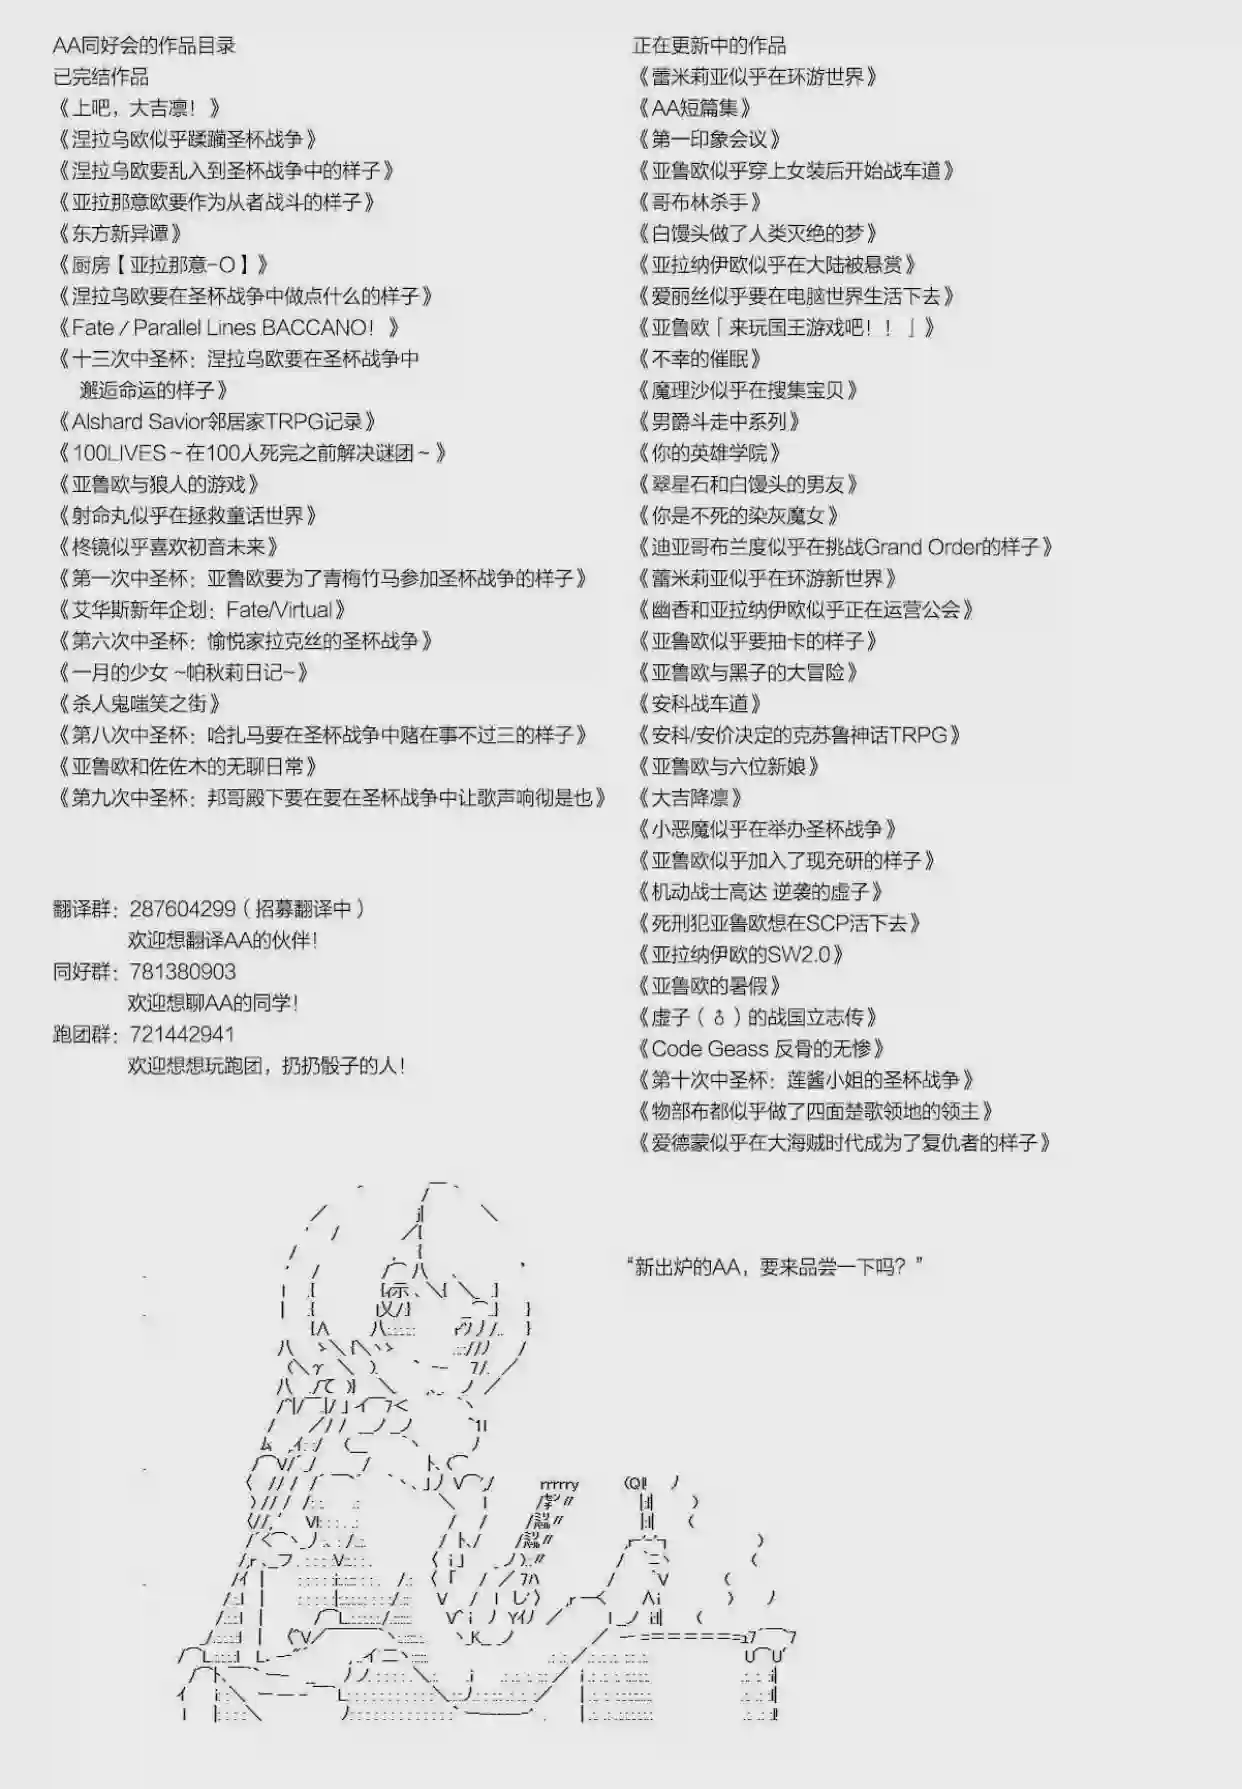 AA同好会的作品目录
已完结作品
《上吧，大吉凛！》
《涅拉乌欧似乎蹂躏圣杯战争》
《涅拉乌欧要乱入到圣杯战争中的样子》
《亚拉那意欧要作为从者战斗的样子》
《东方新异谭》
《厨房【亚拉那意-O】》
《涅拉乌欧要在圣杯战争中做点什么的样子》
《Fate / Parallel Lines BACCANO！》
《十三次中圣杯：涅拉乌欧要在圣杯战争中
邂逅命运的样子》
《Alshard Savior邻居家TRPG记录》
《100LIVES～在100人死完之前解决谜团～》
《亚鲁欧与狼人的游戏》
《射命丸似乎在拯救童话世界》
《柊镜似乎喜欢初音未来》
《第一次中圣杯：亚鲁欧要为了青梅竹马参加圣杯战争的样子》
《艾华斯新年企划：Fate/Virtual》
《第六次中圣杯：愉悦家拉克丝的圣杯战争》
《一月的少女 ~帕秋莉日记~》
《杀人鬼嗤笑之街》
《第八次中圣杯：哈扎马要在圣杯战争中赌在事不过三的样子》
《亚鲁欧和佐佐木的无聊日常》
《第九次中圣杯：邦哥殿下要在要在圣杯战争中让歌声响彻是也》
翻译群：287604299（招募翻译中）
欢迎想翻译AA的伙伴！
同好群：781380903
欢迎想聊AA的同学！
跑团群：721442941
欢迎想想玩跑团，扔扔骰子的人！
正在更新中的作品
《蕾米莉亚似乎在环游世界》
《AA短篇集》
《第一印象会议》
《亚鲁欧似乎穿上女装后开始战车道》
《哥布林杀手》
《白馒头做了人类灭绝的梦》
《亚拉纳伊欧似乎在大陆被悬赏》
《爱丽丝似乎要在电脑世界生活下去》
《亚鲁欧「来玩国王游戏吧！！」》
《不幸的催眠》
《魔理沙似乎在搜集宝贝》
《男爵斗走中系列》
《你的英雄学院》
《翠星石和白馒头的男友》
《你是不死的染灰魔女》
《迪亚哥布兰度似乎在挑战Grand Order的样子》
《蕾米莉亚似乎在环游新世界》
《幽香和亚拉纳伊欧似乎正在运营公会》
《亚鲁欧似乎要抽卡的样子》
《亚鲁欧与黑子的大冒险》
《安科战车道》
《安科/安价决定的克苏鲁神话TRPG》
《亚鲁欧与六位新娘》
《大吉降凛》
《小恶魔似乎在举办圣杯战争》
《亚鲁欧似乎加入了现充研的样子》
《机动战士高达 逆袭的虚子》
《死刑犯亚鲁欧想在SCP活下去》
《亚拉纳伊欧的SW2.0》
《亚鲁欧的暑假》
《虚子（♂）的战国立志传》
《Code Geass 反骨的无惨》
《第十次中圣杯：莲酱小姐的圣杯战争》
《物部布都似乎做了四面楚歌领地的领主》
《爱德蒙似乎在大海贼时代成为了复仇者的样子》
“新出炉的AA，要来品尝一下吗？”